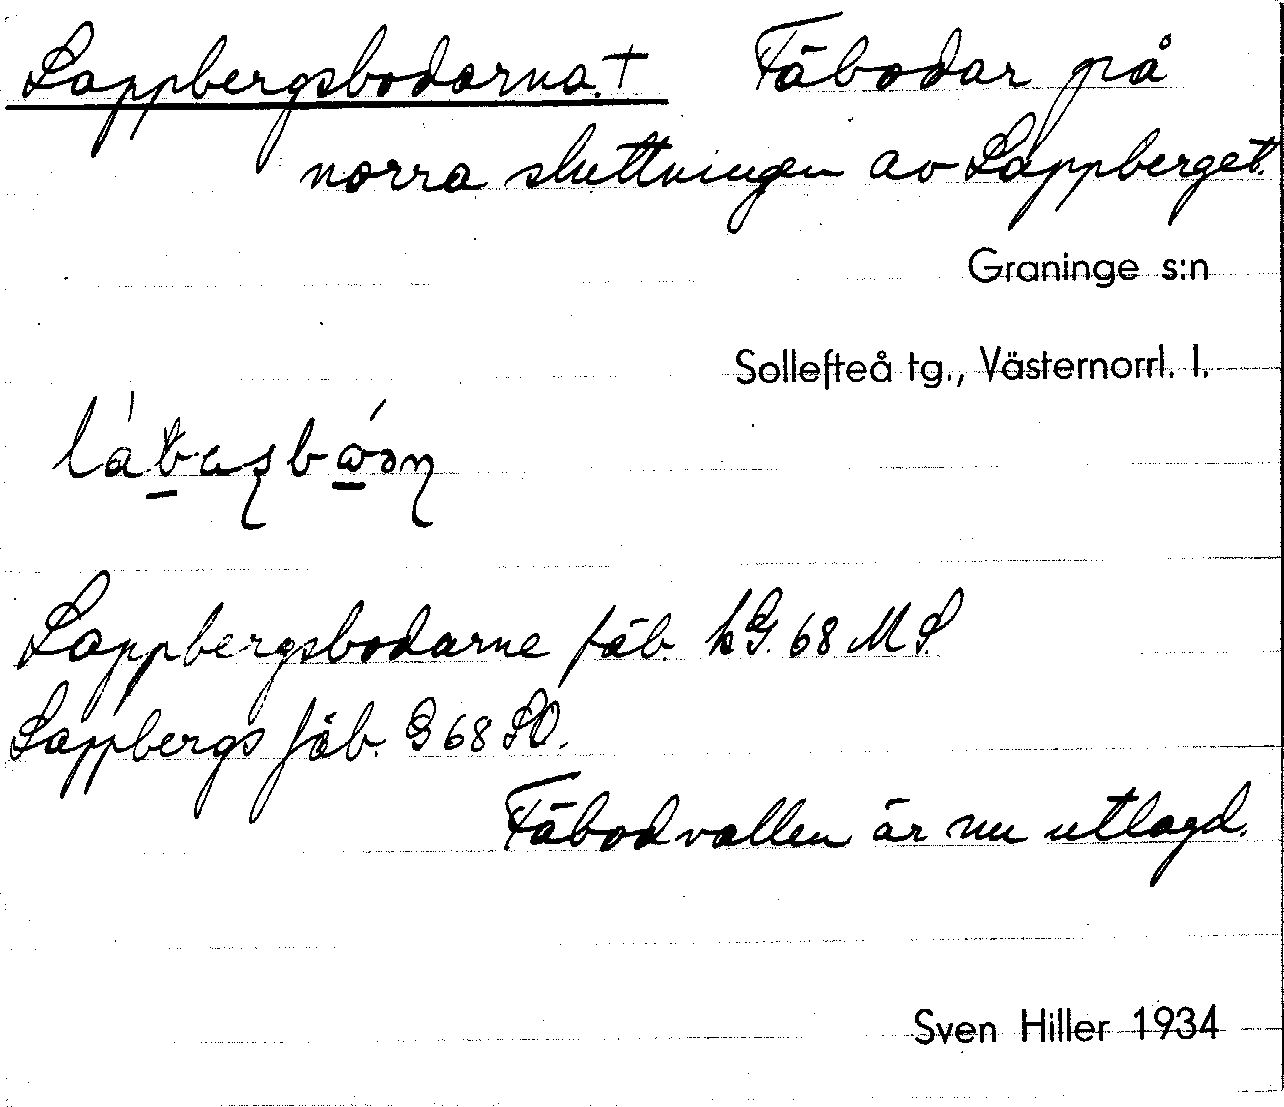 Lappbergsbodarna.† Fäbodar på
norra sluttningen av Lappberget.
Graninge s:n
Sollefteå tg., Västernorrl. l.
Lappbergsbodarne fäb. hG. 68 MS
Lappbergs fäb. G 68 SO.
Fäbodvallen är nu utlagd.
Sven Hiller 1934